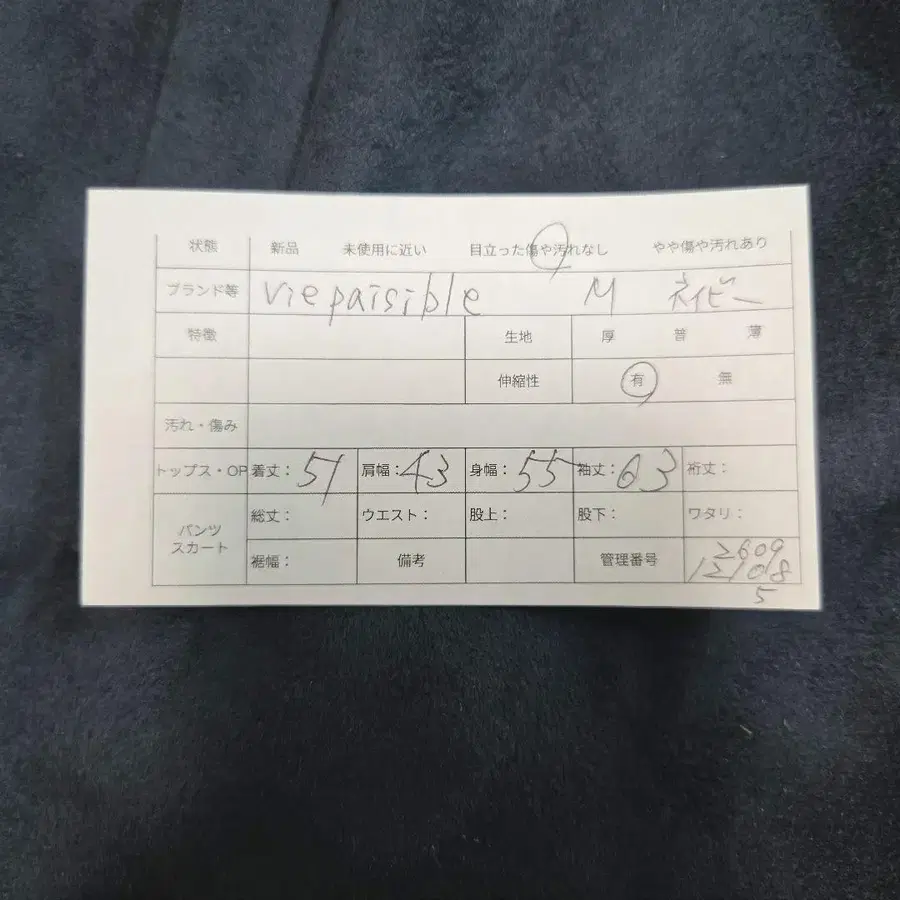 状態 新品 未使用に近い 目立った傷や汚れなし やや傷や汚れあり
ブランド等 Vie paisible M ネイビー
特徴 生地 厚 普 薄
伸縮性 有 無
汚れ・傷み
トップス・OP 着丈: 51 肩幅: 43 身幅: 55 袖丈: 63 裄丈:
パンツ スカート 総丈: ウエスト: 股上: 股下: ワタリ:
裾幅: 備考 管理番号 2609
12108
5